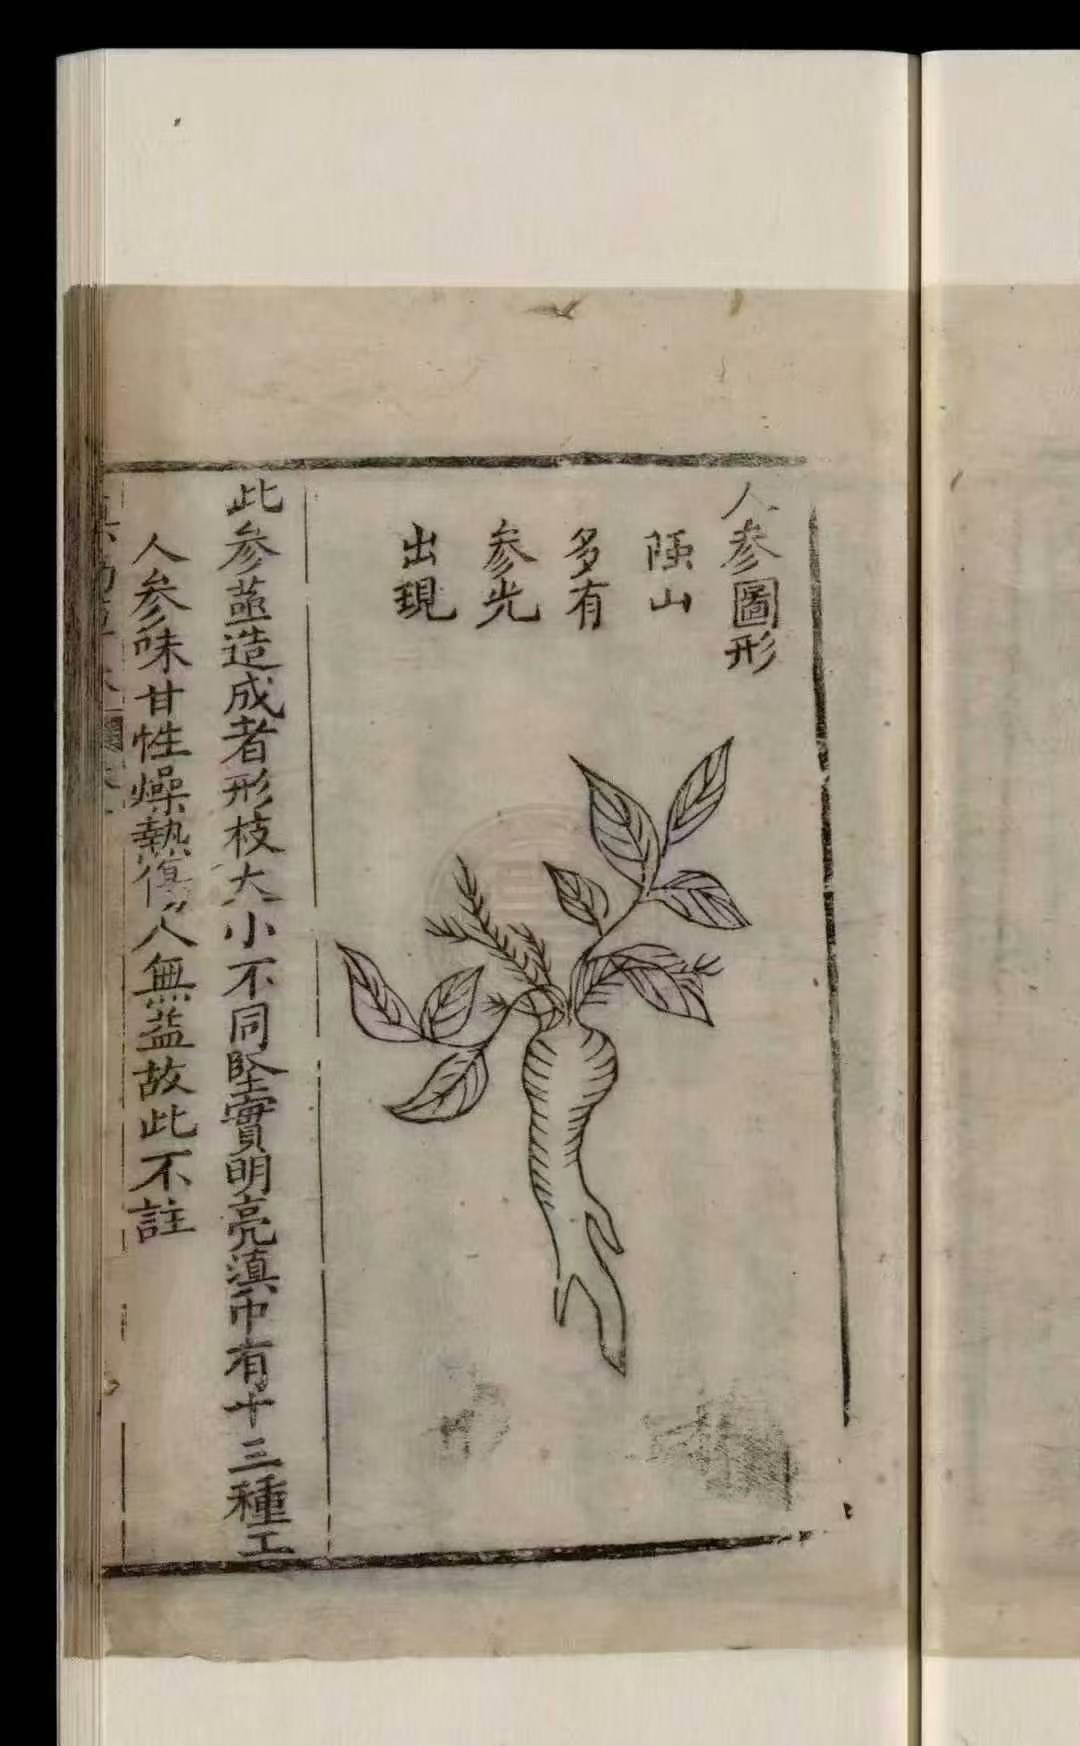 人参圖形
山
多有
参光
出現
此参蒸造成者形枝大小不同坚實明亮滇中有十三種工
人参味甘性燥熱傷人無益故此不註